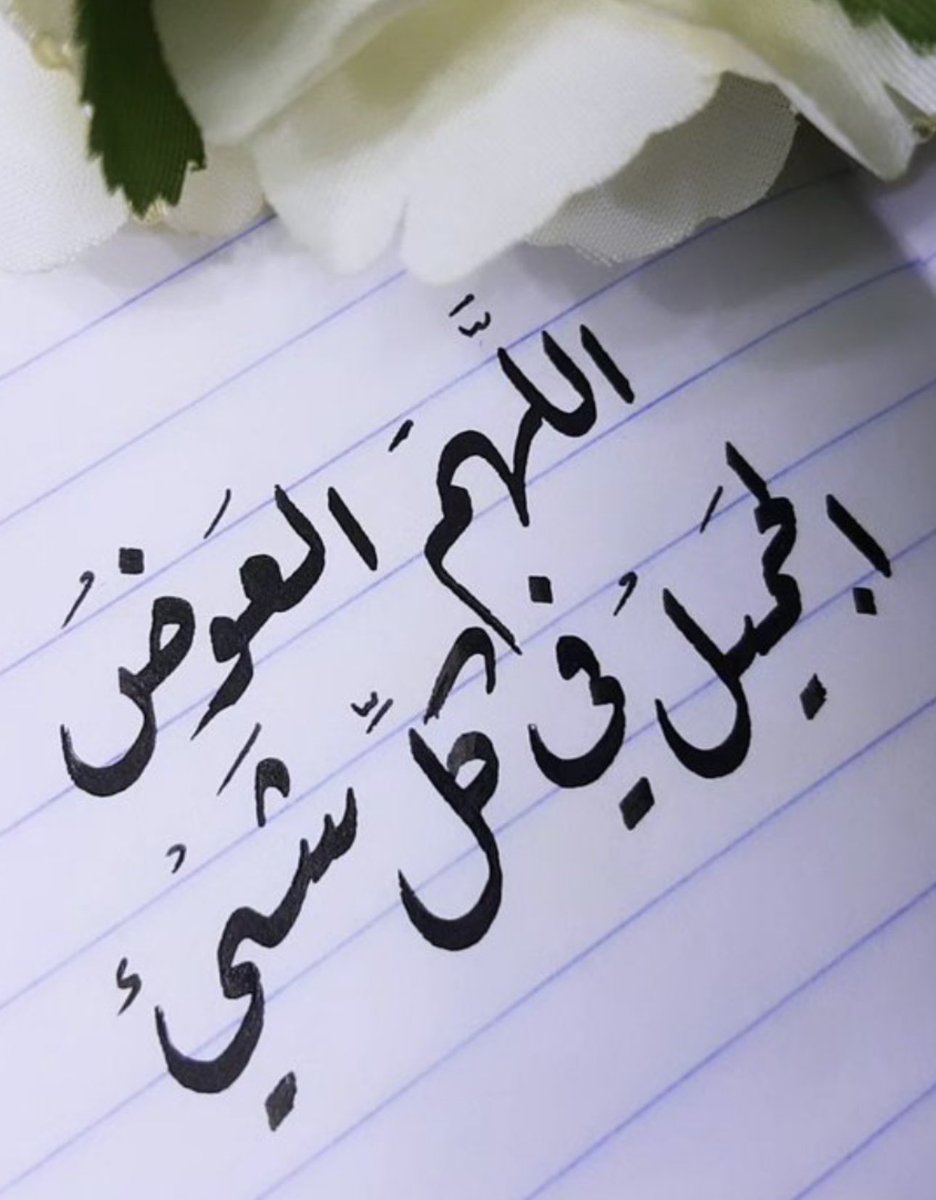 اللَّهمَ العَوَضُ
الجَميلُ في كلِّ شَيْئ